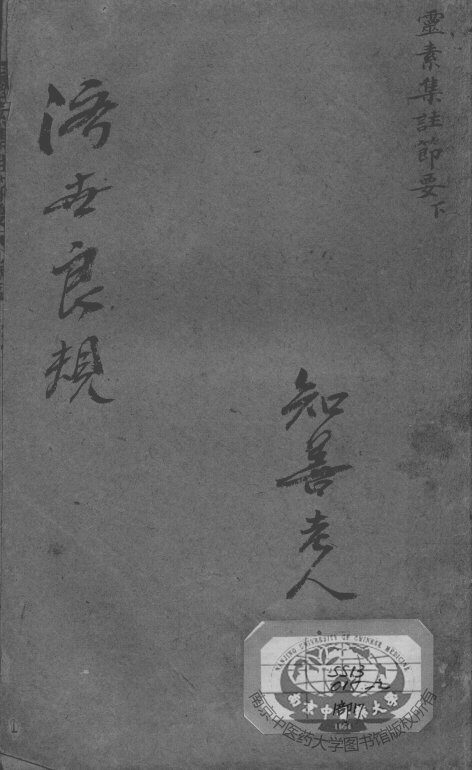 靈素集註節要下
知善老人
济世良規
NANJING UNIVERSITY OF CHINESE MEDICINE
南京中医药大学
1954
南京中医药大学图书馆版权所有
1